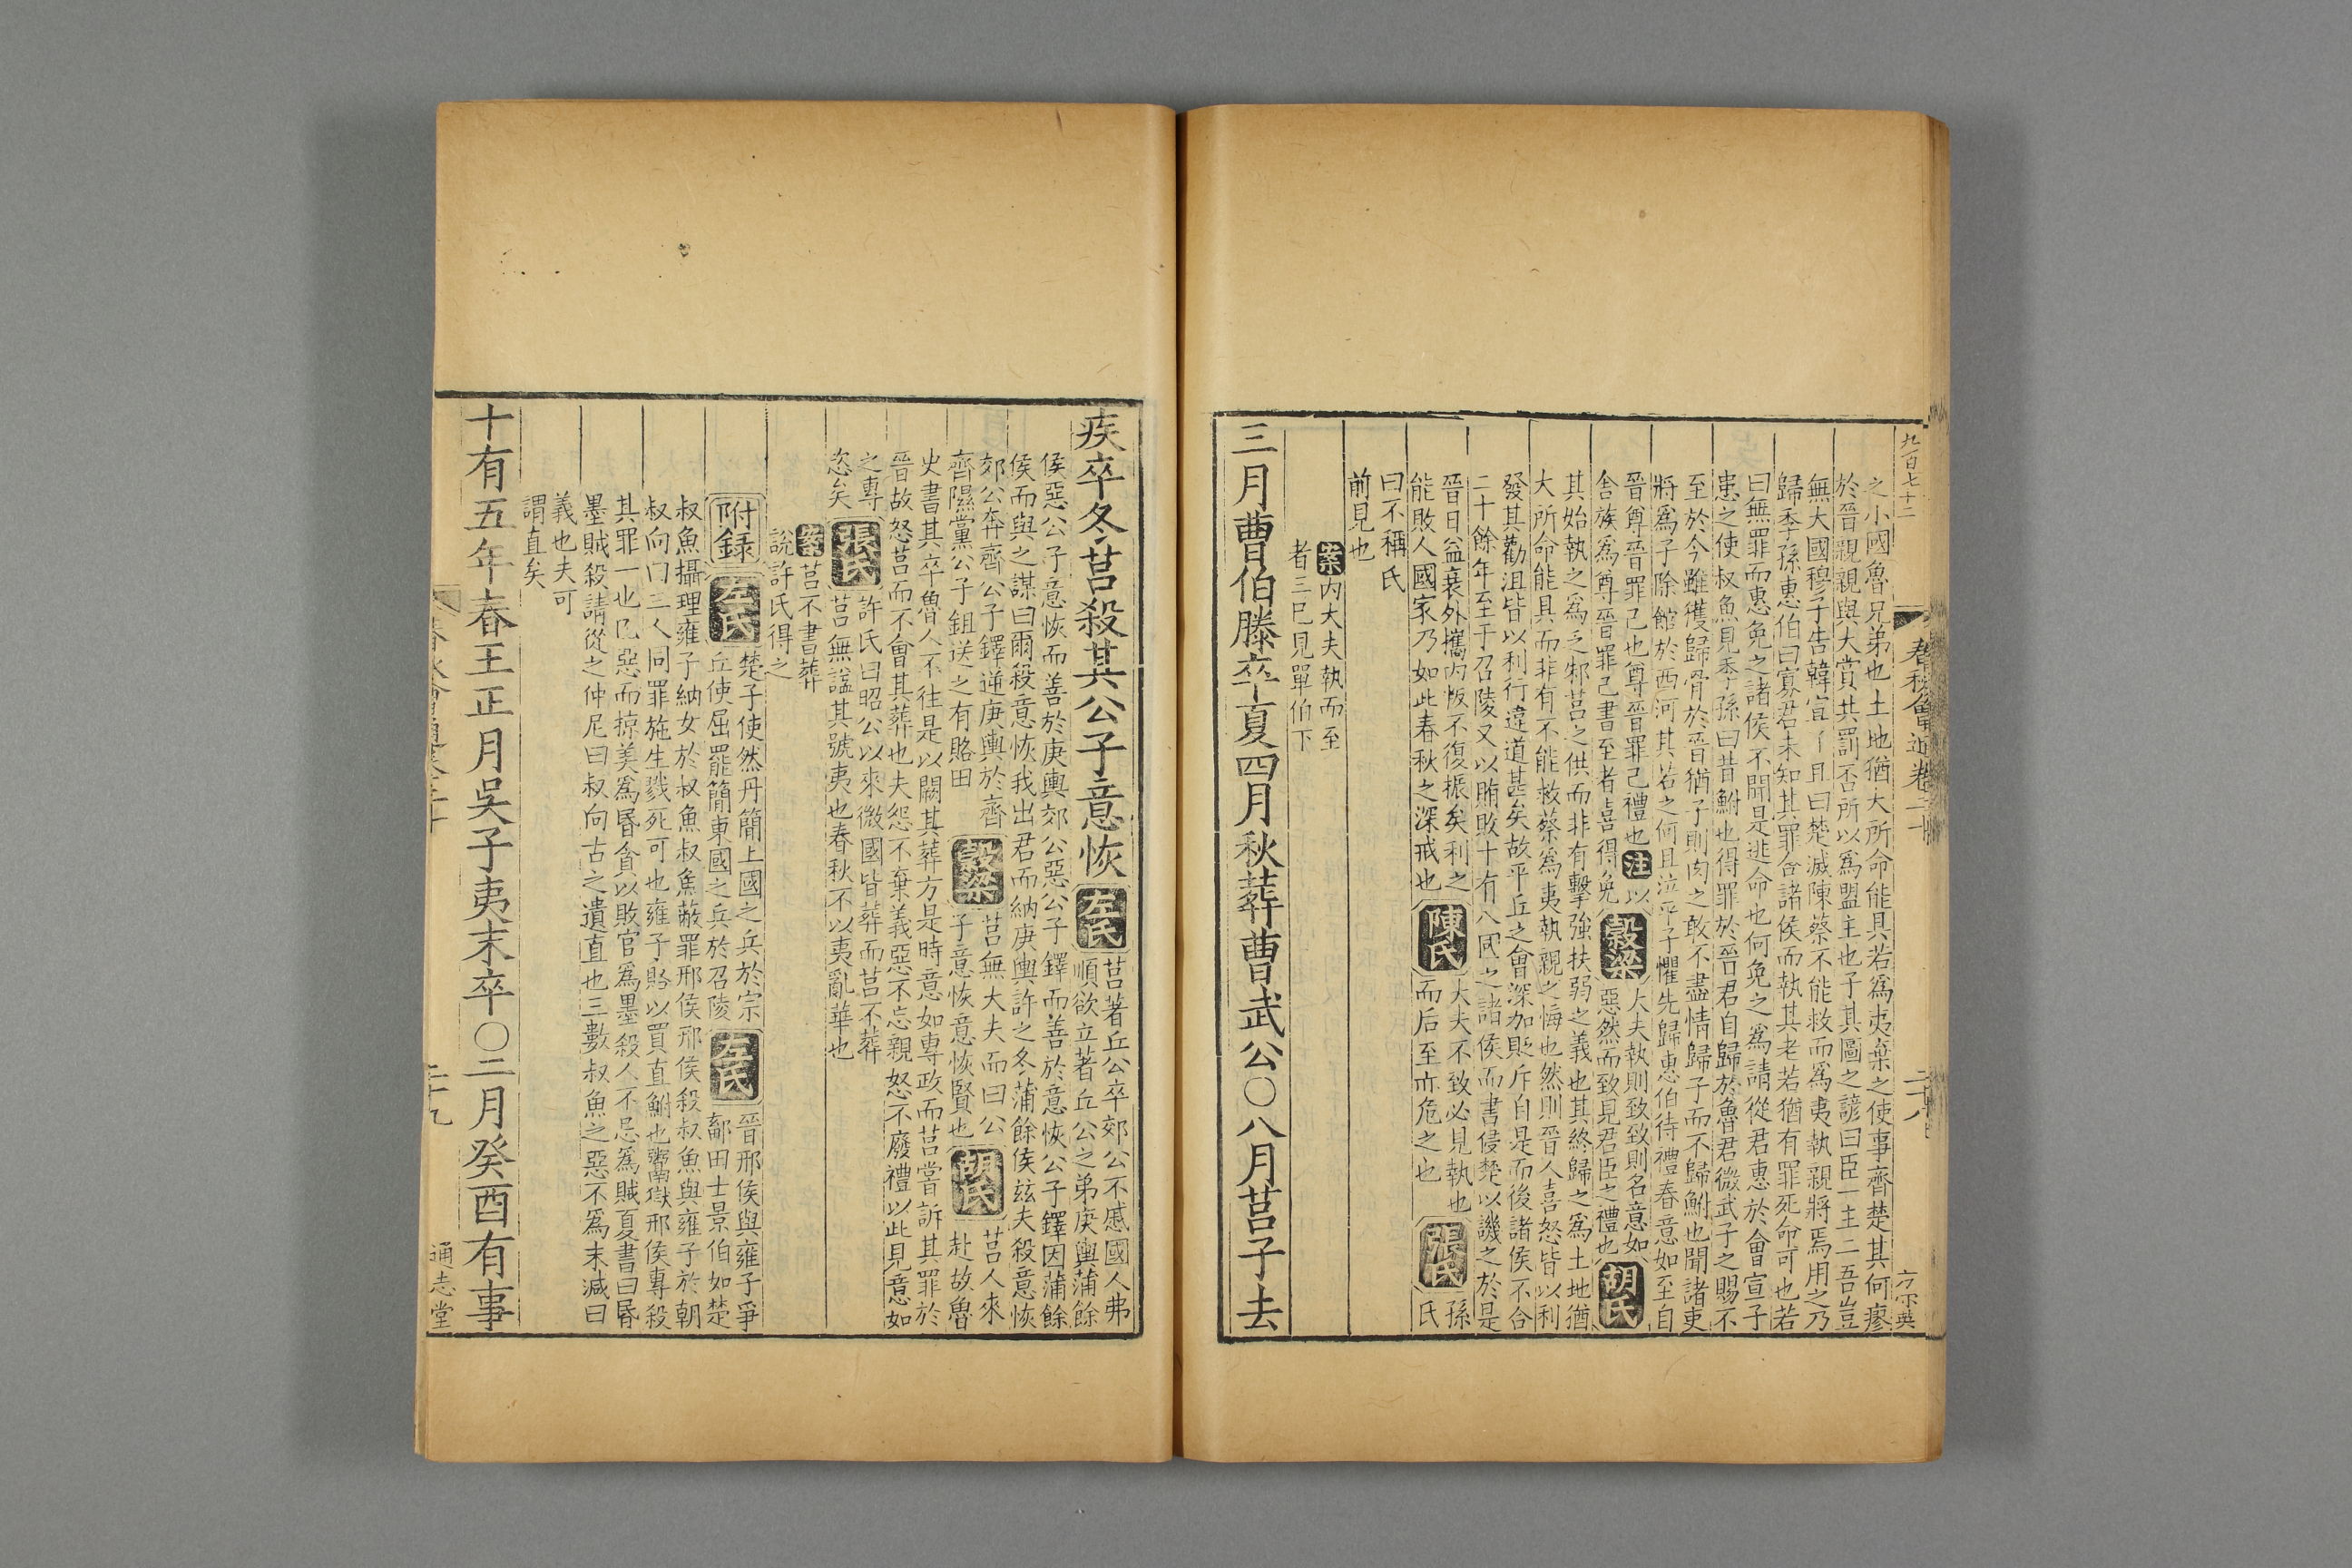 九百七十二
春秋會通卷二十
二十八
之小國魯兄弟也土地猶大所命能具若爲夷棄之使事齊楚其何瘳
於晉親親與大賞共罰否所以爲盟主也子其圖之諺曰臣一主二吾豈
無大國穆子告韓宣子且曰楚滅陳蔡不能救而爲夷執親將焉用之乃
歸季孫惠伯曰寡君未知其罪合諸侯而執其老若猶有罪死命可也若
曰無罪而惠免之諸侯不聞是逃命也何免之爲請從君惠於會宣子
患之使叔魚見季孫曰昔鮒也得罪於晉君自歸於魯君微武子之賜不
至於今雖獲歸骨於晉猶子則肉之敢不盡情歸子而不歸鮒也聞諸吏
將爲子除館於西河其若之何且泣平子懼先歸惠伯待禮春意如至自
晉尊晉罪己也尊晉罪己禮也注以
舍族爲尊晉罪己書至者喜得免
穀梁
大夫執則致致則名意如
惡然而致見君臣之禮也
胡氏
其始執之爲乏邾莒之供而非有擊強扶弱之義也其終歸之爲土地猶
大所命能具而非有不能救蔡爲夷執親之悔也然則晉人喜怒皆以利
發其勸沮皆以利行違道甚矣故平丘之會深加貶斥自是而後諸侯不合
二十餘年至于召陵又以賄敗十有八國之諸侯而書侵楚以譏之於是
晉日益衰外攜內叛不復振矣利之
能敗人國家乃如此春秋之深戒也
陳氏
大夫不致必見執也
而后至亦危之也
張氏
孫
氏
曰不稱氏
前見也
案內大夫執而至
者三巳見單伯下
三月曹伯滕卒夏四月秋葬曹武公○八月莒子去
疾卒冬莒殺其公子意恢
左氏
莒著丘公卒郊公不慼國人弗
順欲立著丘公之弟庚輿蒲餘
侯惡公子意恢而善於庚輿郊公惡公子鐸而善於意恢公子鐸因蒲餘
侯而與之謀曰爾殺意恢我出君而納庚輿許之冬蒲餘侯茲夫殺意恢
郊公奔齊公子鐸逆庚輿於齊
齊隰黨公子鉏送之有賂田
穀梁
莒無大夫而曰公
子意恢意恢賢也
胡氏
莒人來
赴故魯
史書其卒魯人不往是以闕其葬方是時意如專政而莒嘗訴其罪於
晉故怒莒而不會其葬也夫怨不棄義惡不忘親怒不廢禮以此見意如
之專
恣矣
張氏
許氏曰昭公以來微國皆葬而莒不葬
莒無謚其號夷也春秋不以夷亂華也
案莒不書葬
說許氏得之
附錄
左氏
楚子使然丹簡上國之兵於宗
丘使屈罷簡東國之兵於召陵
左氏
晉邢侯與雍子爭
鄐田士景伯如楚
叔魚攝理雍子納女於叔魚叔魚蔽罪邢侯邢侯殺叔魚與雍子於朝
叔向曰三人同罪施生戮死可也雍子賂以買直鮒也鬻獄邢侯專殺
其罪一也己惡而掠美爲昬貪以敗官爲墨殺人不忌爲賊夏書曰昬
墨賊殺請從之仲尼曰叔向古之遺直也三數叔魚之惡不爲末減曰
義也夫可
謂直矣
十有五年春王正月吳子夷末卒○二月癸酉有事
二十九
通志堂